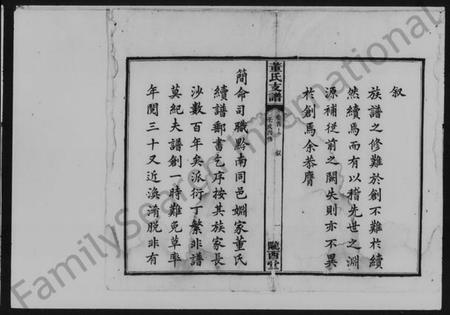 叙
族譜之修難於創不難於續
然續焉而有以稽先世之淵
源補從前之闕失則亦不異
於創焉余恭膺
董氏支譜
卷首上
叙
隴西堂
簡命司職黔南同邑姻家董氏
續譜郵書乞序按其族家長
沙數百年矣派衍丁繁非譜
莫紀夫譜創一時難免草率
年閱三十又近淡淆脫非有
FamilySearch International